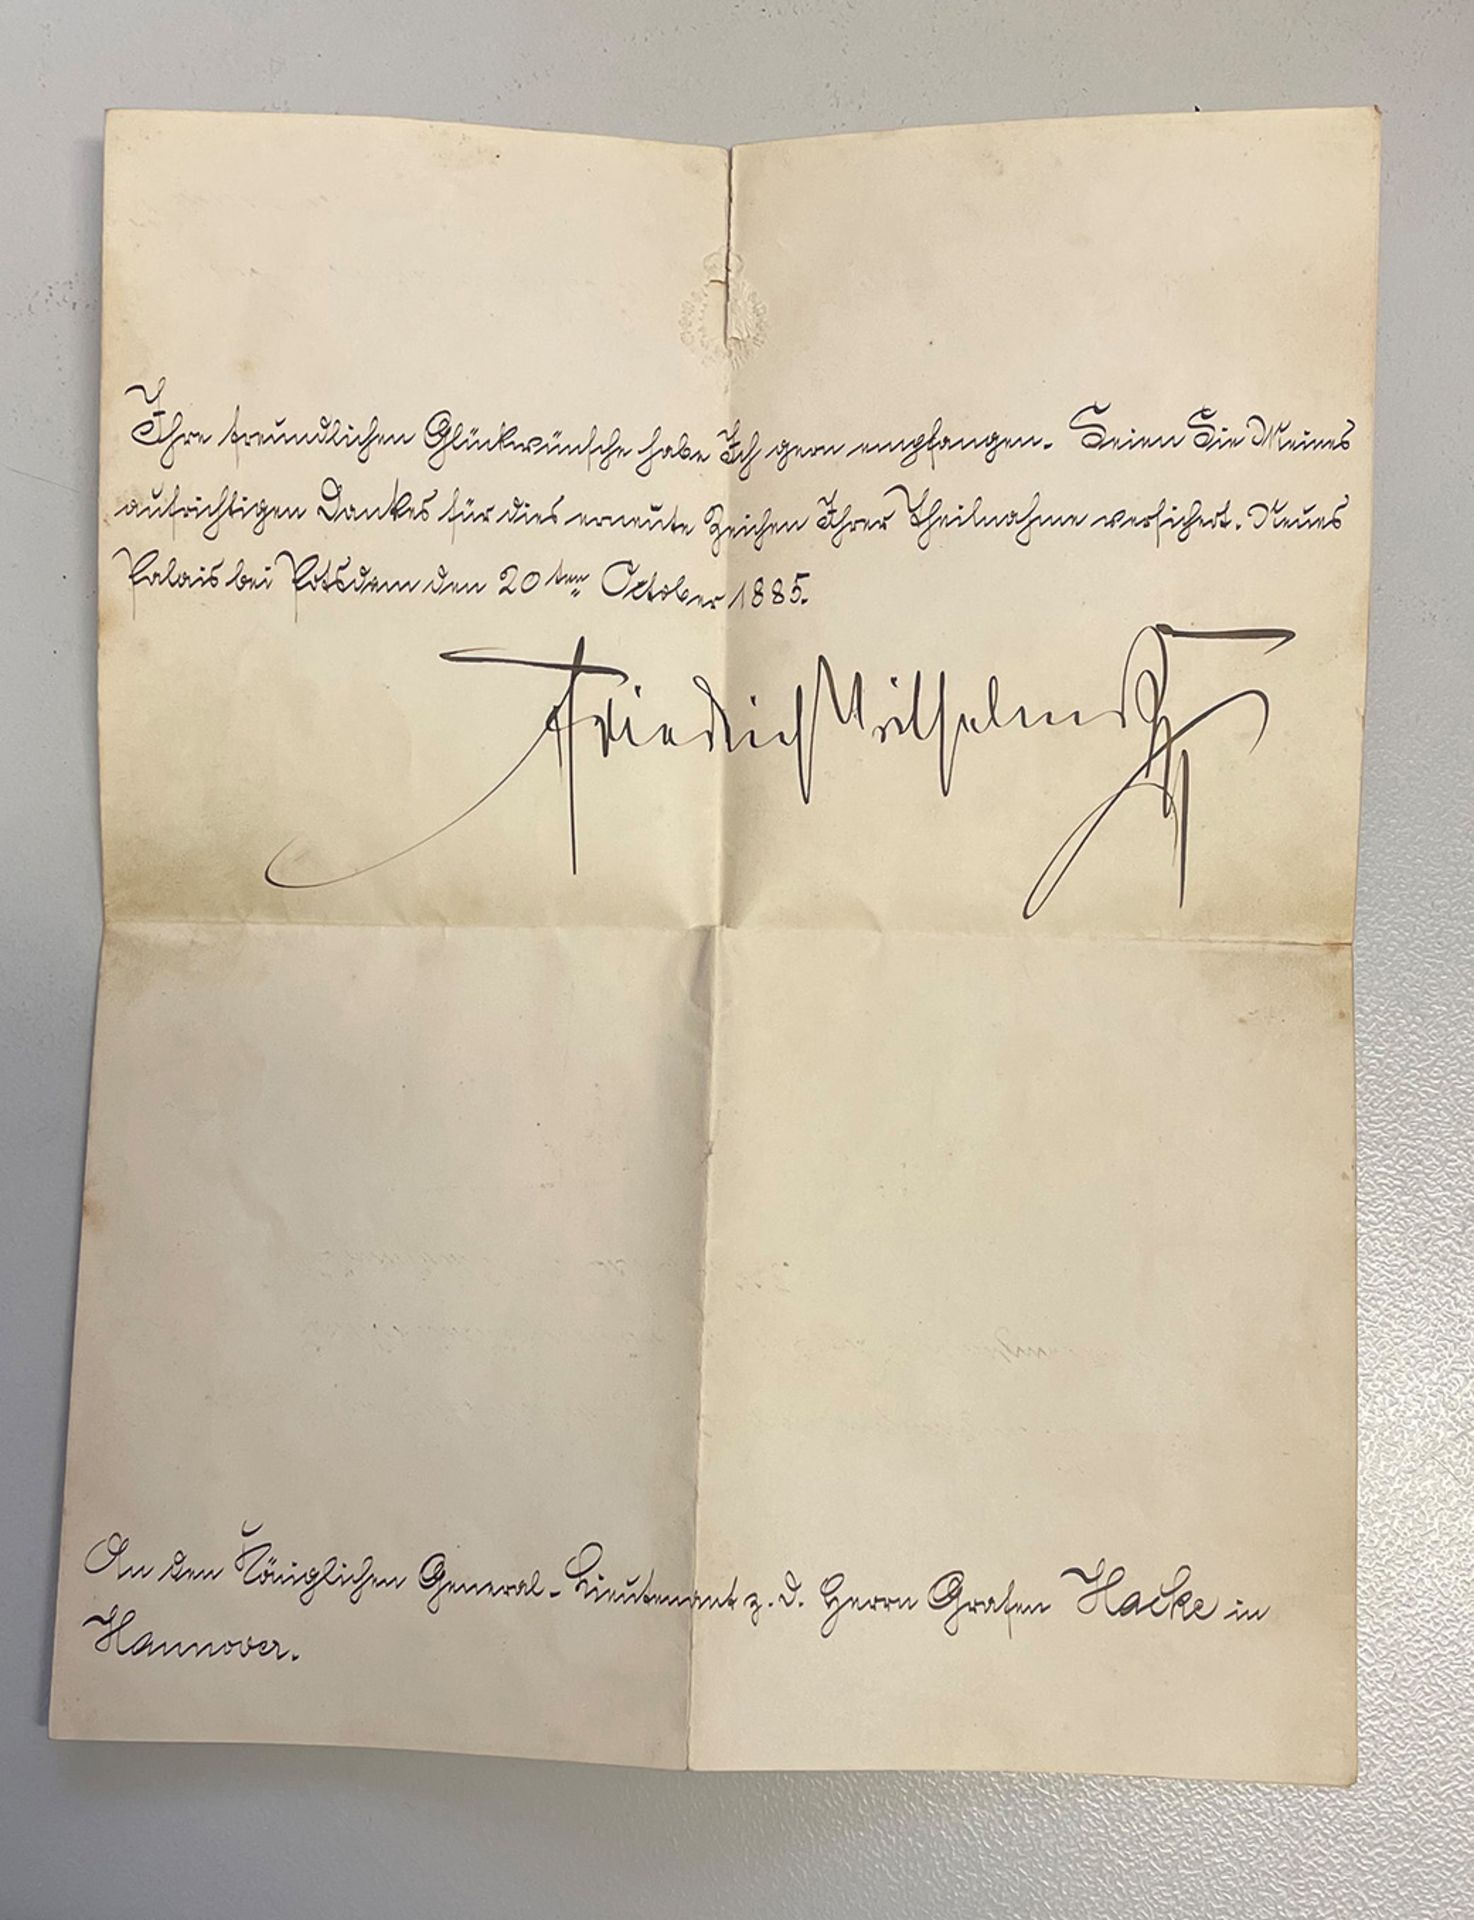 Ihre freundlichen Glückwünsche habe Ich gern empfangen. Seien Sie Meines
aufrichtigen Dankes für dies erneute Zeichen Ihrer Theilnahme versichert. Neues
Palais bei Potsdam den 20ten October 1885.
Friedrich Wilhelm
An den Königlichen General-Lieutenant z. D. Herrn Grafen Hacke in
Hannover.